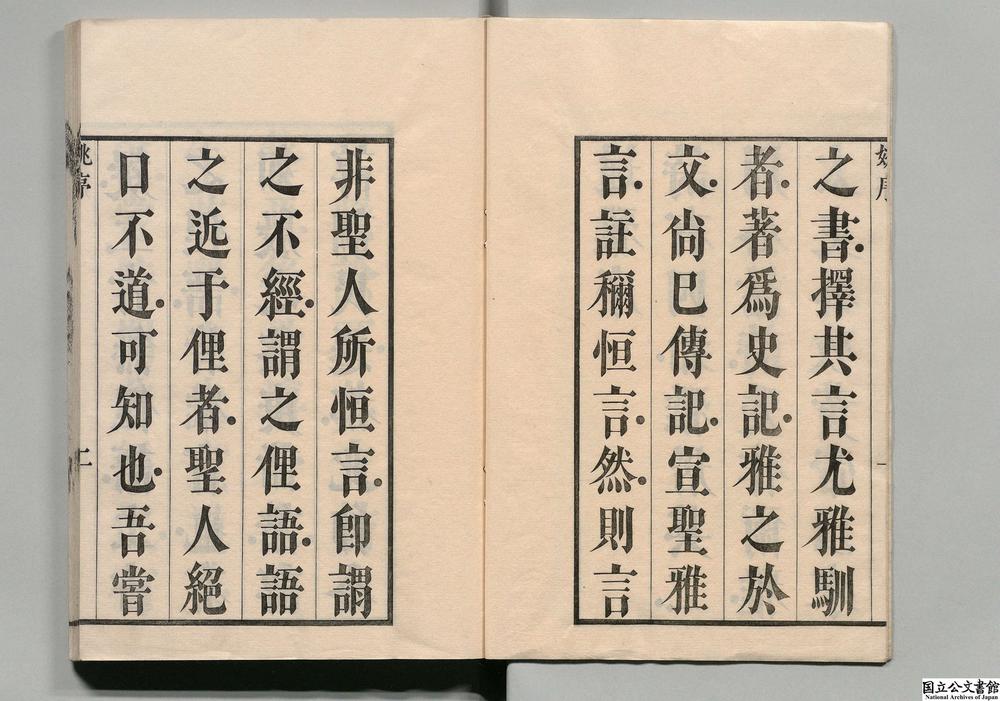 之書擇其言尤雅馴
者著爲史記雅之於
文尙巳傳記宣聖雅
言註穪恒言然則言
非聖人所恒言卽謂
之不經謂之俚語語
之近于俚者聖人絕
口不道可知也吾嘗
二
国立公文書館
National Archives of Japan